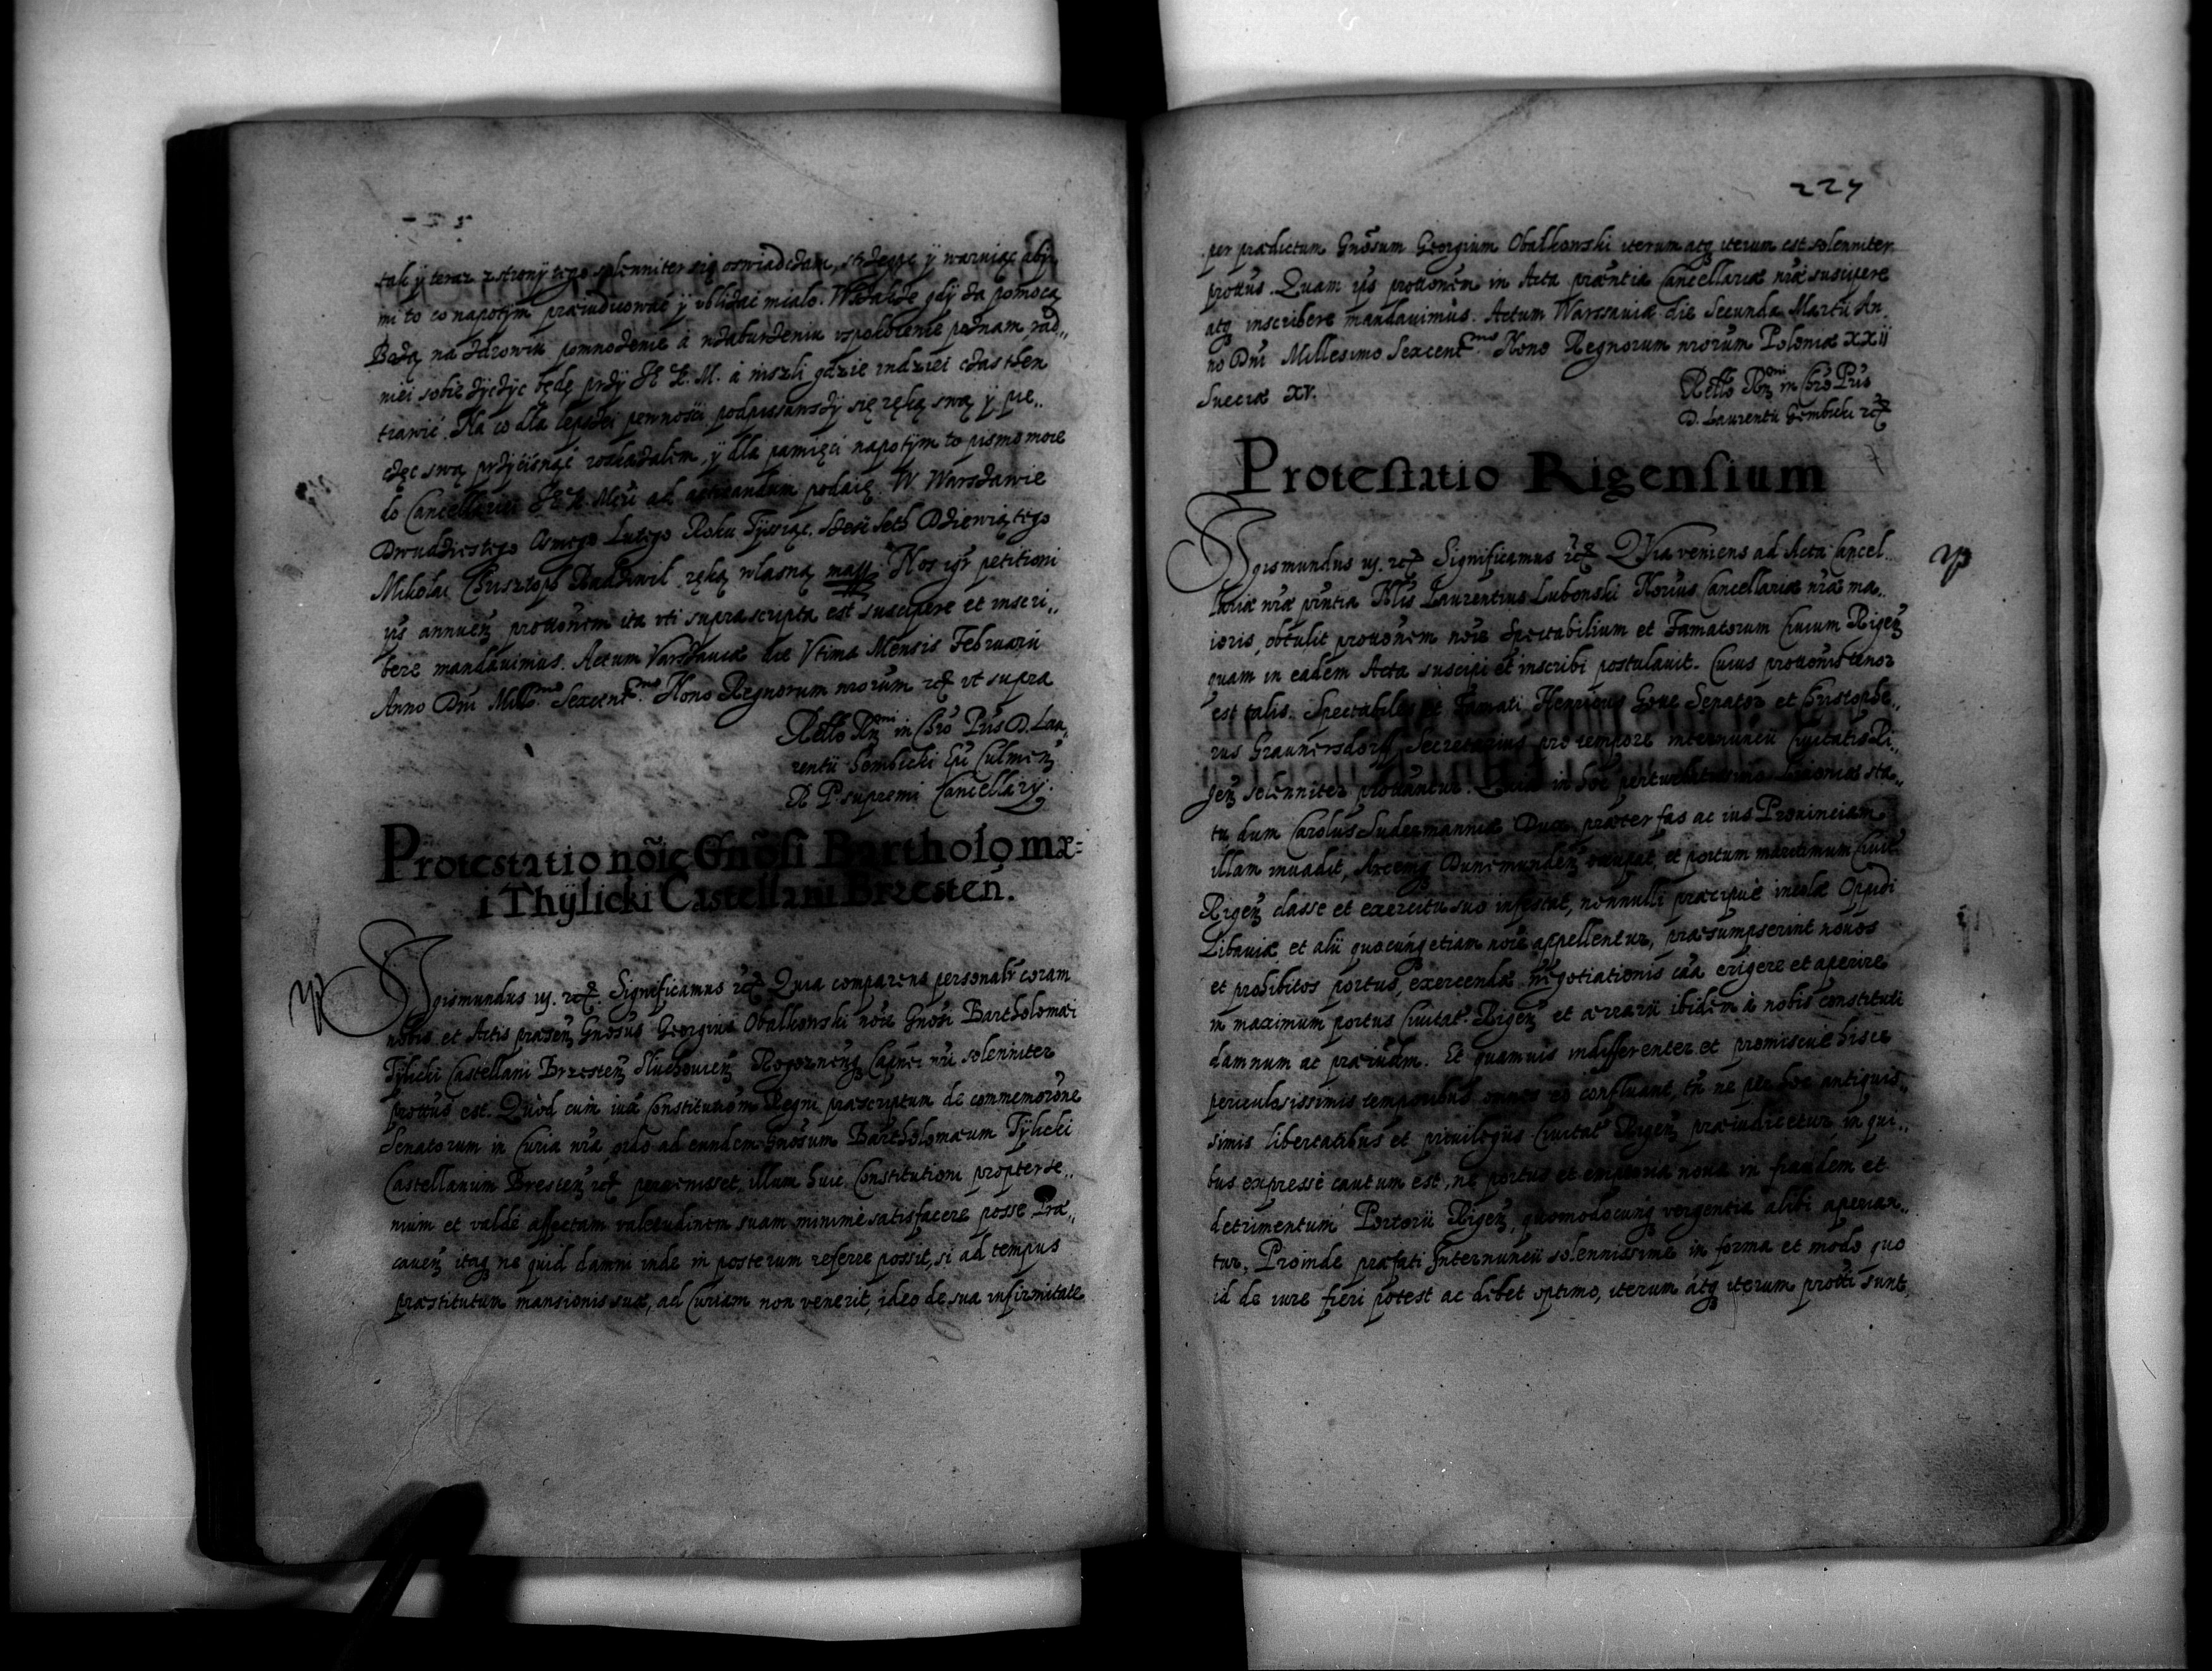 tak ÿ teraz z strony tego solenniter się oswiadcżam, strzegąc ÿ waruiąc abÿ
mi to co napotÿm præiudicowac ÿ vbliżać miało. Wszakże gdÿ za pomocą
Bożą na zdrowiu pomnożenie á wzburzeniu vspokoienie poznam, rad„
niei sobie życżyc będę przÿ JE K. M. á niszli gdzie indziei cżas then
trawić. Na co dla lepszei pewności podpisawszÿ się ręką swą ÿ pie„
cżęc swą przÿcisnąć roskazalem, ÿ dla pamięci napotÿm to pismo moie
do Cancellariei JE K. Mći ad acticandum podaię. W Warszawie
Dwudziestego Osmego Lutego Roku Tÿsiąc. Szesc seth Dziewiątego
Mikołai Chrisztoph Radziwil ręką własną mpp Nos igr petitioni
ÿs annueñ prottonem ita vti suprascripta est suscipere et inscri„
bere mandauimus. Actum Varszauiæ die Vtima Mensis Februarii
Anno Dni Mill.mo Sexcent.mo Nono Regnorum nrorum etc vt supra
Rełło Rmi in Chro Pris D. Lau„
rentii Gembicki Epi Culmeñ
R P. supremi Cancellarÿ.
Protestatio nõie Gnõsi Bartholomæ=
i Thÿlicki Castellani Brzesteñ.
Sigismundus iij. etc. Significamus etc Quia comparens personalr coram
nobis et Actis praseñ Gnosus Georgius Obałkowski noie Gnosi Bartholomæi
Tÿlicki Castellani Brzesteñ Kluchowieñ Rogoznensq Capnei nri solenniter
prottus est. Quod cum iuxa Constitutiom Regni præscriptum de commemorone
Senatorum in Curia nra ordo ad eundem Gnosum Bartholomæum Tÿlicki
Castellanum Brzesteñ etc peruenisset, illum huic Constitutioni propter se„
nium et valde affectam valetudinem suam minime satisfacere posse Præ„
caueñ itaq ne quid damni inde in posterum referre possit, si ad tempus
præstitutum mansionis suæ, ad Curiam non venerit, ideo de sua infirmitate
227
per prædictum Gnosum Georgium Obałkowski iterum atq iterum est solenniter
prottus. Quam ÿs prottonem in Acta præntia Cancellariæ nræ suscipere
atq inscribere mandauimus. Actum Warssauiæ die Secunda Martii An.
no Dni Millesimo Sexcent.mo Nono Regnorum nrorum Poloniæ XXij
Sueciæ XV.
Rełło Rmi in Chro Pris
D. Laurentii Gembicki etc
Protestatio Rigensium
Sigismundus iij. etc Significamus etc QVia veniens ad Acta Cancel„
lariæ nræ pruntia Nlis Laurentius Lubonski Norius Cancellariæ nræ ma„
ioris, obtulit prottonem noie Spectabilium et Famatorum Ciuium Rigeñ
quam in eadem Acta suscipi et inscribi postulauit. Cuius prottonis tenor
est talis. Spectabiles et Famati Henricus Goue Senator et Christophe„
rus Graunersdorff Secretarius pro tempore internuncii Ciuitatis Ri„
geñ solenniter prottantur. Quia in hoc perturbatissimo Liuoniæ sta„
tu dum Carolus Sudermanniæ Dux præter fas ac ius Prouinciam
illam inuadit, Arcemq Dunemundeñ occupat, et portum maritimum Ciuit
Rigeñ classe et exercitu suo infestat, nonnulli præcipue incolæ Oppidi
Libauiæ et alii quocunq etiam noie appellentur, præsumpserint nouos
et prohibitos portus, exercendæ negotiationis caa erigere et aperire
in maximum portus Ciuitat. Rigeñ et ærarii ibidem à nobis constituti
damnum ac præiudm. Et quamuis indifferenter et promiscue hisce
periculosissimis temporibus omnes eò confluant, tn ne per hoc antiquis„
simis libertatibus et priuilegiis Ciuitat. Rigeñ præiudicetur, in qui„
bus expresse cautum est, ne portus et emporia noua in fraudem et
detrimentum Portorii Rigeñ, quomodocunq vergentia alibi aperian„
tur. Proinde præfati Internuncii solennissime in forma et modo quo
id de iure fieri potest ac debet optimo, iterum atq iterum protti sunt,